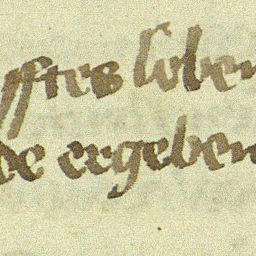 fftes loben
de ergeben